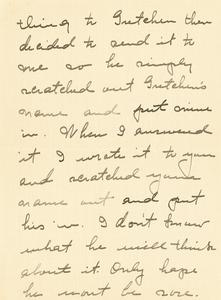 thing to Gretchen then
decided to send it to
me so he simply
scratched out Gretchen's
name and put mine
in. When I answered
it I wrote it to you
and scratched your
name out and put
his in. I don't know
what he will think
about it. Only hope
he wont be sore.